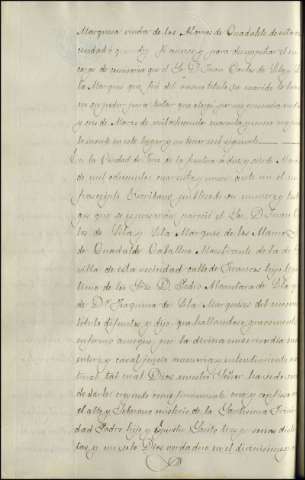 Marquesa viuda de los Alamos de Guadalete de esta
ciudad que doy
cargo de comisaria que el Sr D. Juan Carlos de Vila y Vi
la Marques que fué del mismo título, su marido le
un poder para testar que otorgó por ante
y seis de Marzo de mil ochocientos cuarenta y nueve
En la Ciudad de Jerez de la frontera a diez y seis de Marzo
de mil ochocientos cuarenta y nueve ante mi el in
frascripto Escribano publico de su numero y testi
gos que se espresarán pareció el Sor. D. Juan Car
los de Vila y Vila Marques de los Alamos
de Guadalete Caballero Maestrante de la de Se
villa de esta vecindad calle de Francos hijo legí
timo de los Sres. D. Pedro Alcantara de Vila y
de Da. Joaquina de Vila Marqueses del mismo
título difuntos, y dijo: que hallandose gravemente
enfermo aunque por la divina misericordia en su
entero y cabal juicio memoria y entendimiento na
tural tal cual Dios nuestro Señor ha sido servido
de darle creyendo como firmemente cree y confiesa en
el alto y Soberano misterio de la Santísima Trini
dad Padre hijo y Espiritu Santo tres personas distin
tas, y un solo Dios verdadero